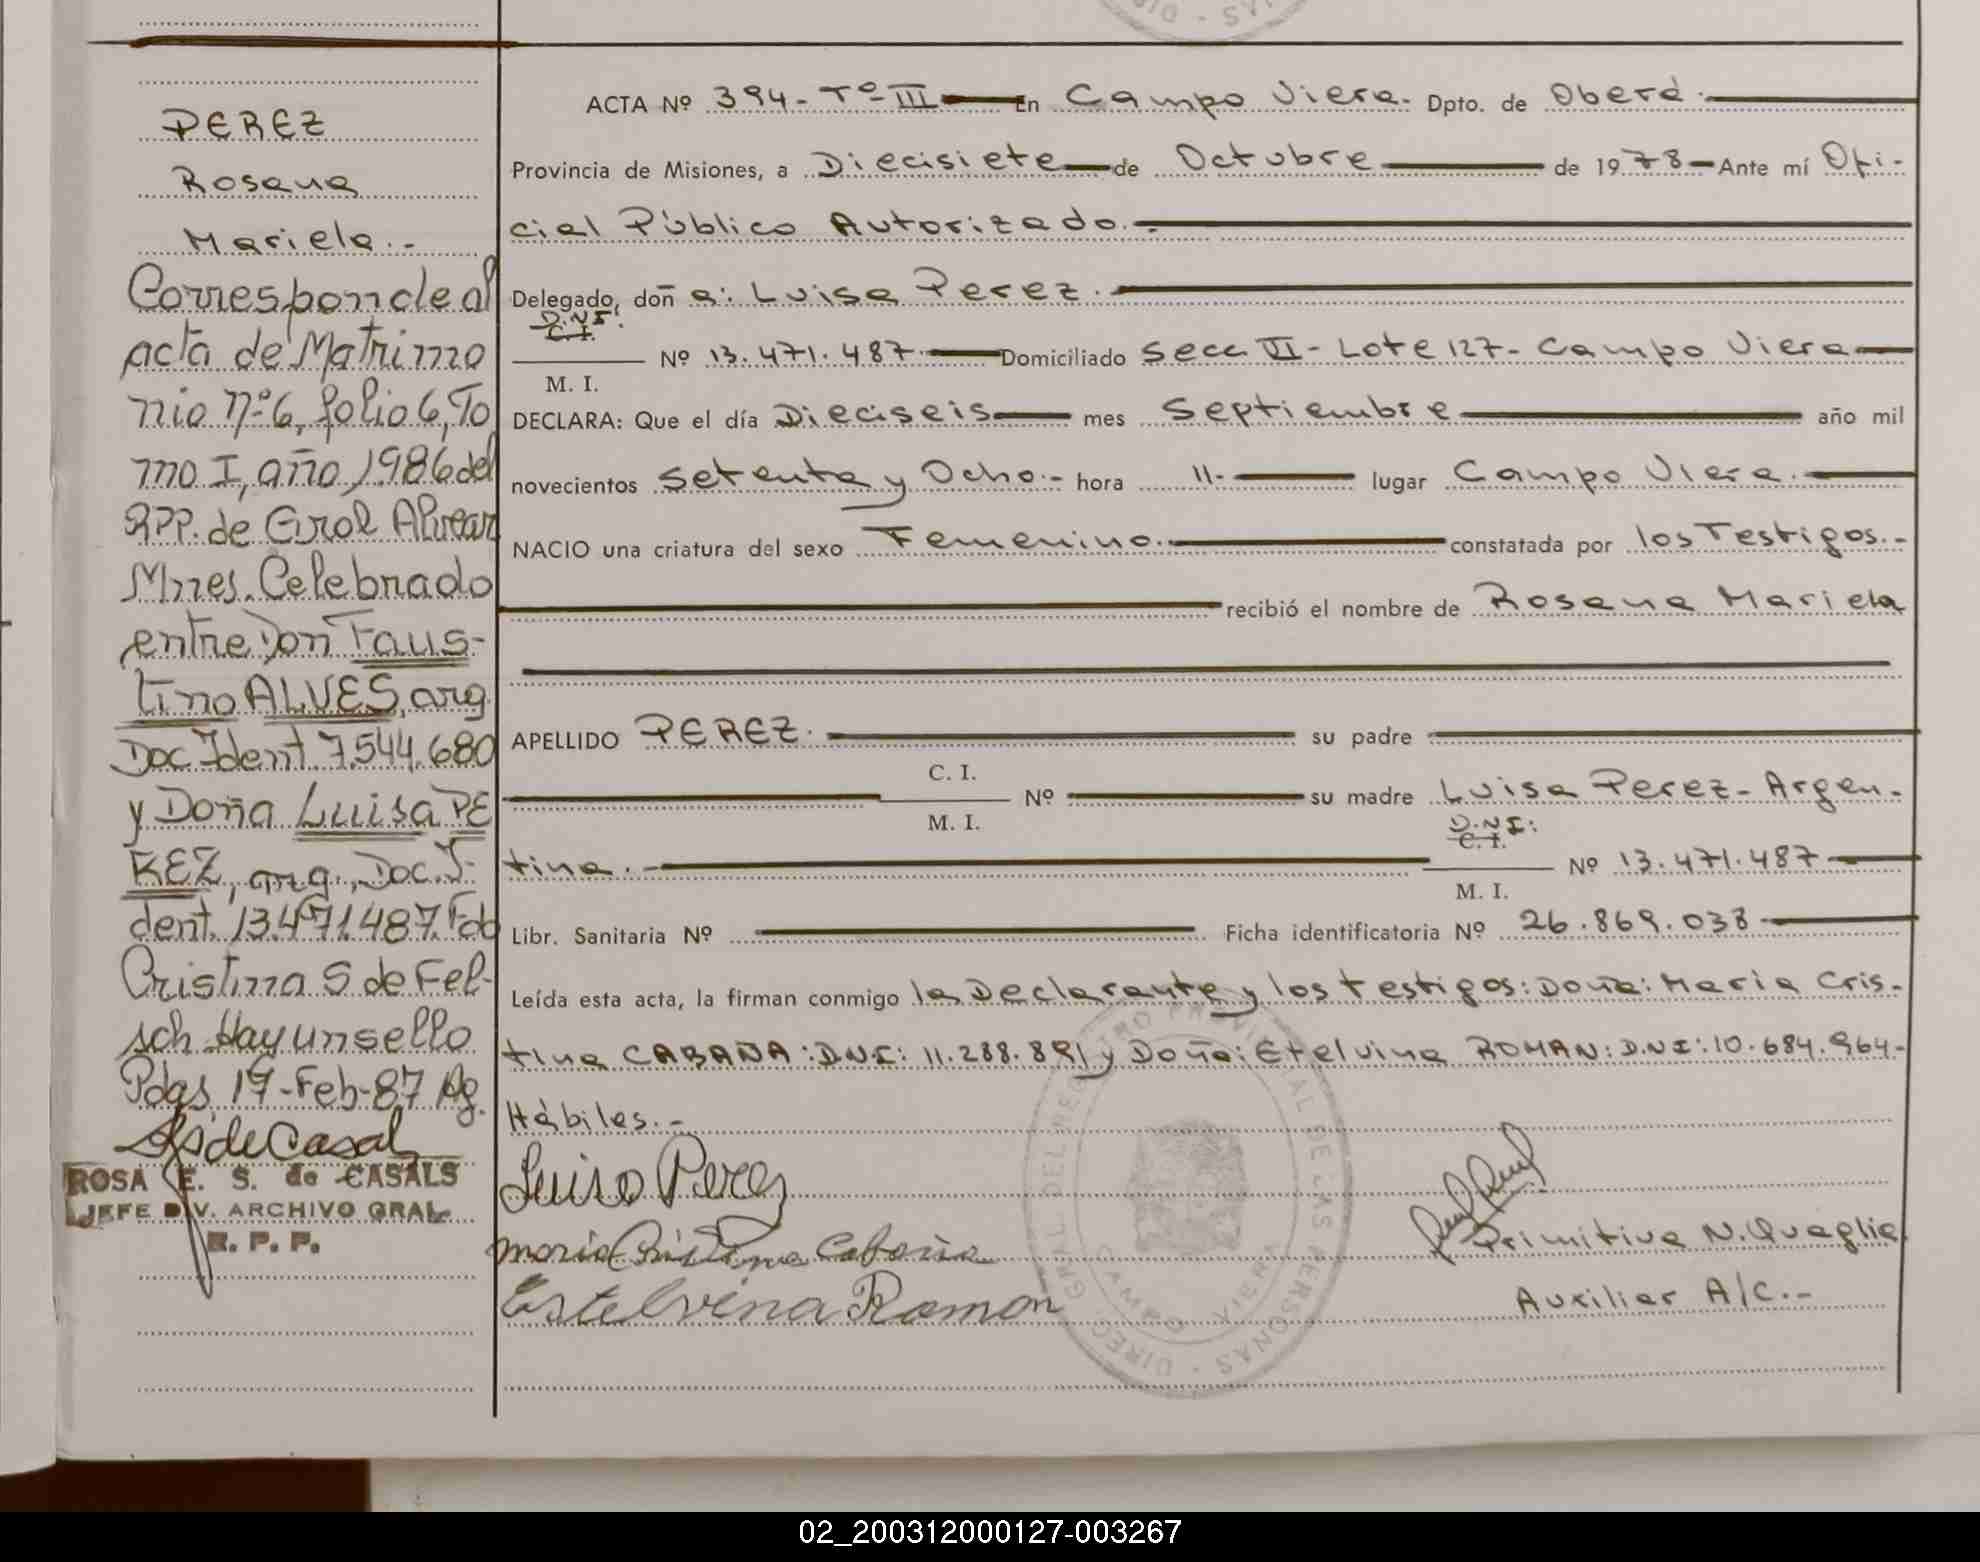 PEREZ
Rosana
Mariela.-
Corresponde al
acta de Matrimo
nio nº 6, folio 6, To
mo I, año 1986 del
RPP. de Gral Alvear
Mnes. Celebrado
entre Don Faus-
tino ALVES, arg.
Doc Ident. 7.544.680
y Doña Luisa PE
REZ, arg., Doc. I-
dent. 13.471.487. Fdo
Cristina S de Fel-
sch. Hay un sello
Pdas, 17-Feb-87 Ag.
ROSA E. S. de CASALS
JEFE DIV. ARCHIVO GRAL.
R. P. P.
ACTA Nº 394- Tº- III En Campo Viera. Dpto. de Oberá.
Provincia de Misiones, a Diecisiete de Octubre de 1978 Ante mí Ofi-
cial Público Autorizado.-
Delegado, doñ a: Luisa Perez.
D.N.I.
C. I.
M. I. Nº 13.471.487. Domiciliado Secc. VI- Lote 127- Campo Viera
DECLARA: Que el día Dieciseis mes Septiembre año mil
novecientos Setenta y Ocho.- hora 11.- lugar Campo Viera.
NACIO una criatura del sexo Femenino. constatada por los Testigos.-
recibió el nombre de Rosana Mariela
APELLIDO PEREZ. su padre
C. I.
M. I. Nº su madre Luisa Perez- Argen-
D.N.I:
C. I.
tina. M. I. Nº 13.471.487
Libr. Sanitaria Nº Ficha identificatoria Nº 26.869.038
Leída esta acta, la firman conmigo la Declarante y los testigos: Doña: Maria Cris-
tina CABAÑA: D.N.I: 11.288.891 y Doña: Etelvina ROMAN: D.N.I: 10.684.964-
Hábiles.-
Luisa Perez
Maria Cristina Cabaña
Estelvina Roman
Primitiva N. Quaglia
Auxiliar A/C.-
DIREC. GRAL. DEL REGISTRO PROVINCIAL DE LAS PERSONAS
CAMPO VIERA
02_200312000127-003267